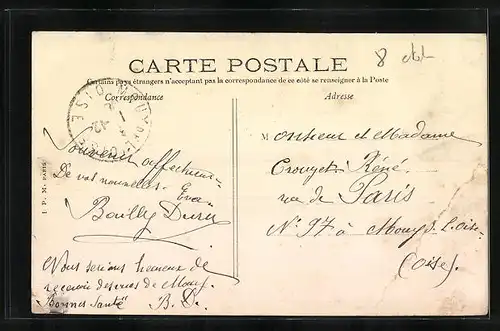 8
CARTE POSTALE
Certains pays étrangers n'acceptant pas la correspondance de ce côté se renseigner à la Poste
Correspondance
Adresse
OISE
Souvenir affectueux
De vos nouvelles. Eva
Bailly Duru
Nous serions heureux de
recevoir des vues de Mouy
Bonnes Santé
B. D.
Monsieur et Madame
Crouzet Réné
rue de Paris
N° 97 à Mouy s. l. Oise
(Oise).
I. P. M. PARIS